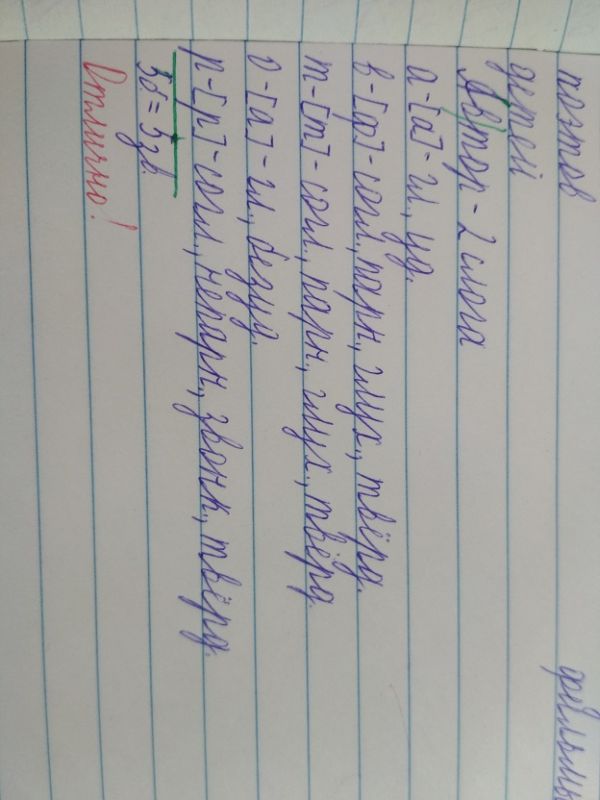 поэтов фильмы
детей
Автор - 2 слога
а-[а]-гл, уд.
в-[ф]-согл, парн, глух, твёрд.
т-[т]-согл, парн, глух, твёрд.
о-[а]-гл, безуд.
р-[р]-согл, непарн, звонк, твёрд.
5б = 5 зв.
Отлично!